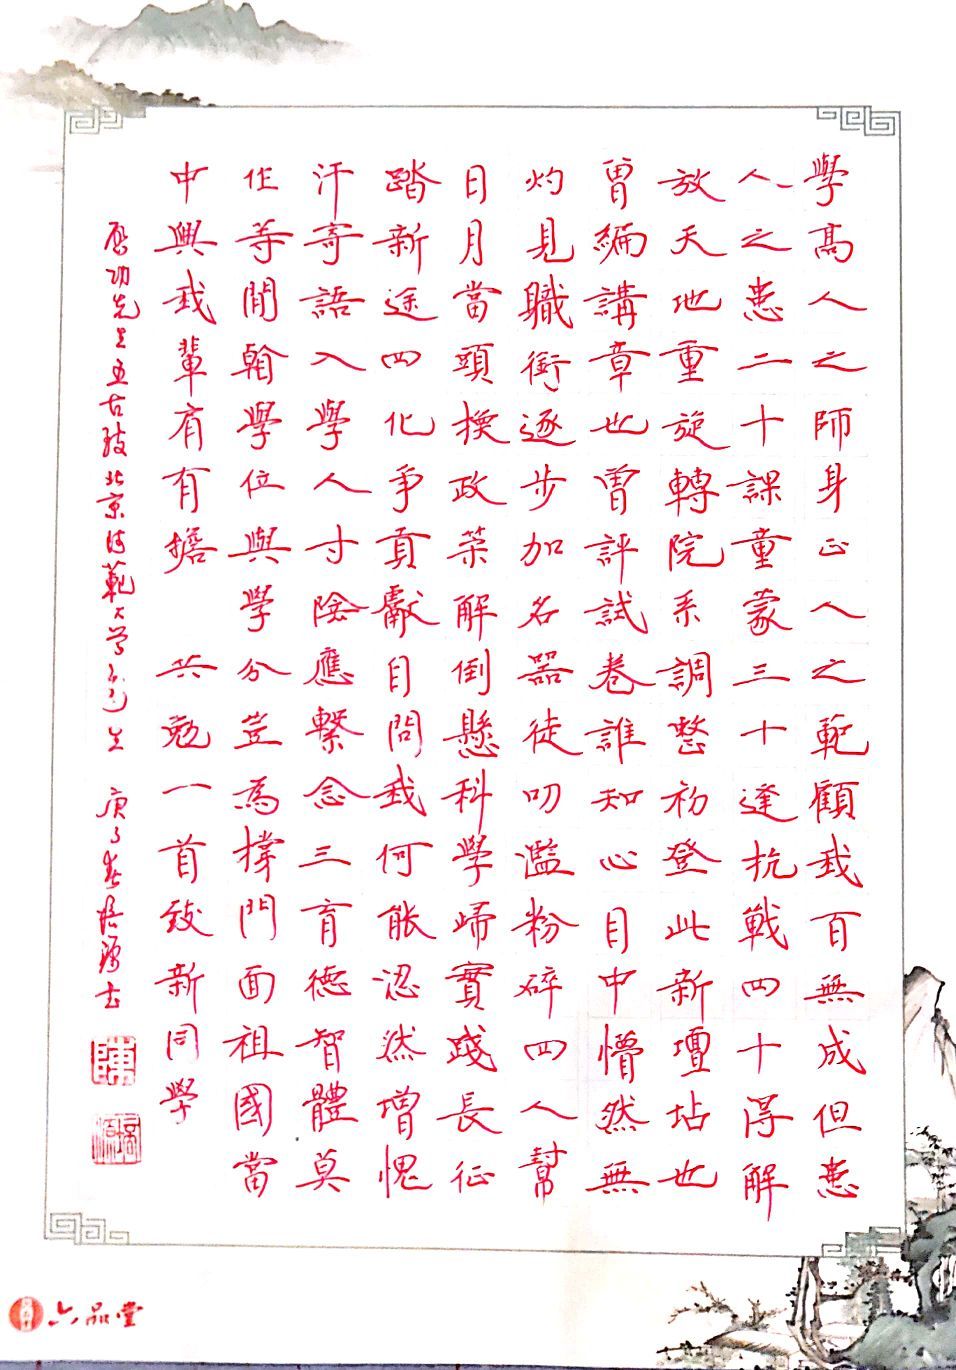 學高人之師身正人之範顧我百無成但患
人之患二十課童蒙三十逢抗戰四十得解
放天地重旋轉院系調整初登此新壇坫也
曾編講章也曾評試卷誰知心目中懵然無
灼見職銜逐步加名器徒叨濫粉碎四人幫
日月當頭換政策解倒懸科學歸實踐長征
踏新途四化爭貢獻自問我何能認然增愧
汗寄語入學人寸陰應繫念三育德智體莫
作等閒看學位與學分豈為撐門面祖國當
中興我輩肩有擔 共勉一首致新同學
啟功先生五古致北京師範大學新生 庚子 書
六品堂